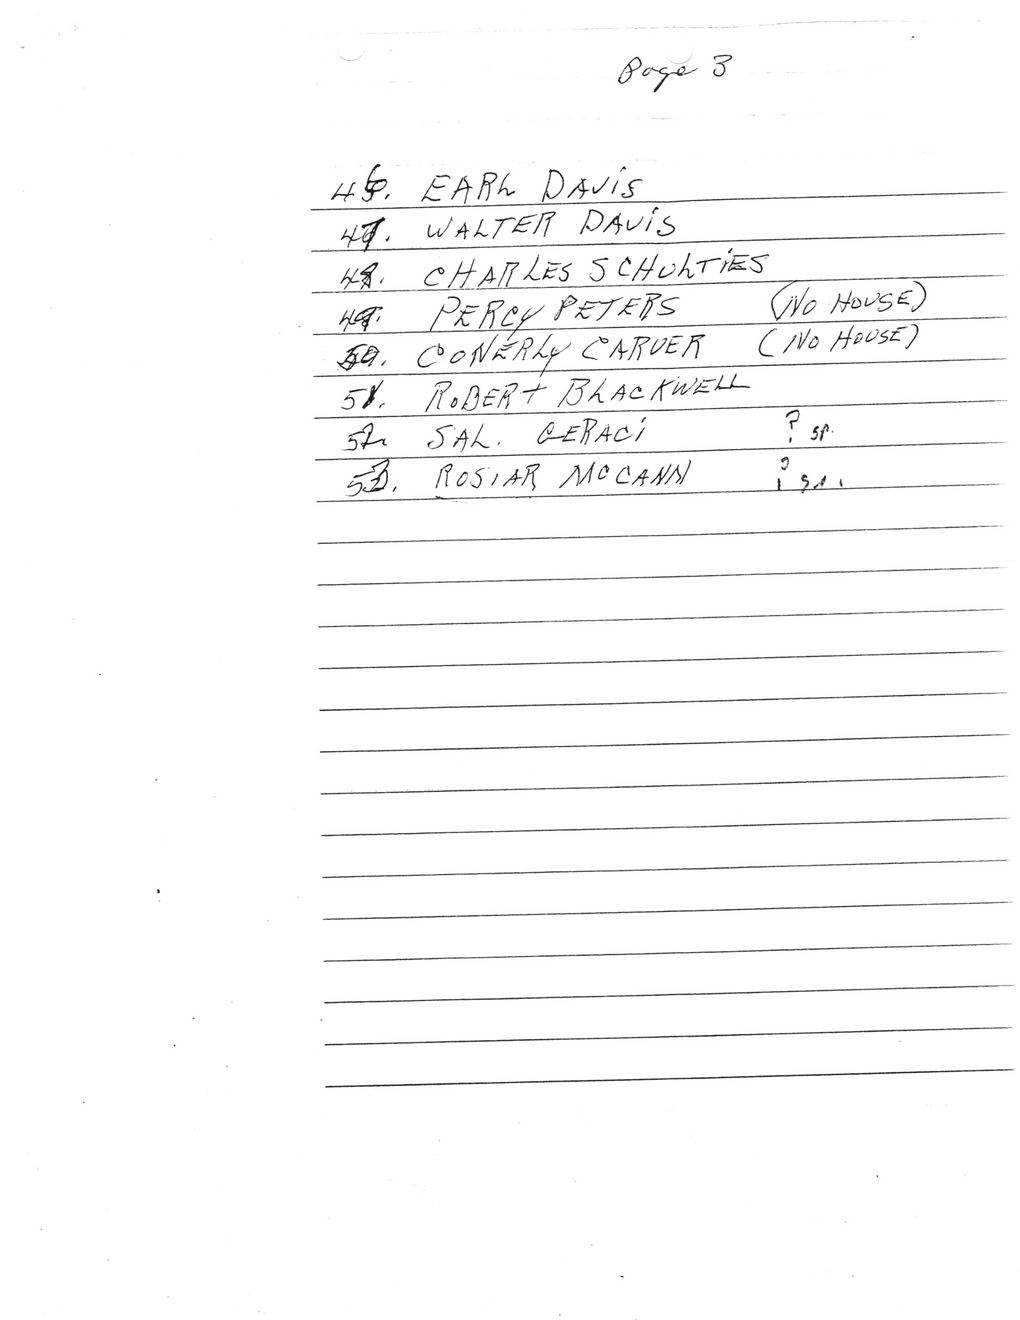 Page 3
46. EARL DAVIS
47. WALTER DAVIS
48. CHARLES SCHULTIES
49. PERCY PETERS (NO HOUSE)
50. CONERLY CARVER (NO HOUSE)
51. ROBERT BLACKWELL
52. SAL. GERACI ? SP.
53. ROSIAR MCCANN ? SP.